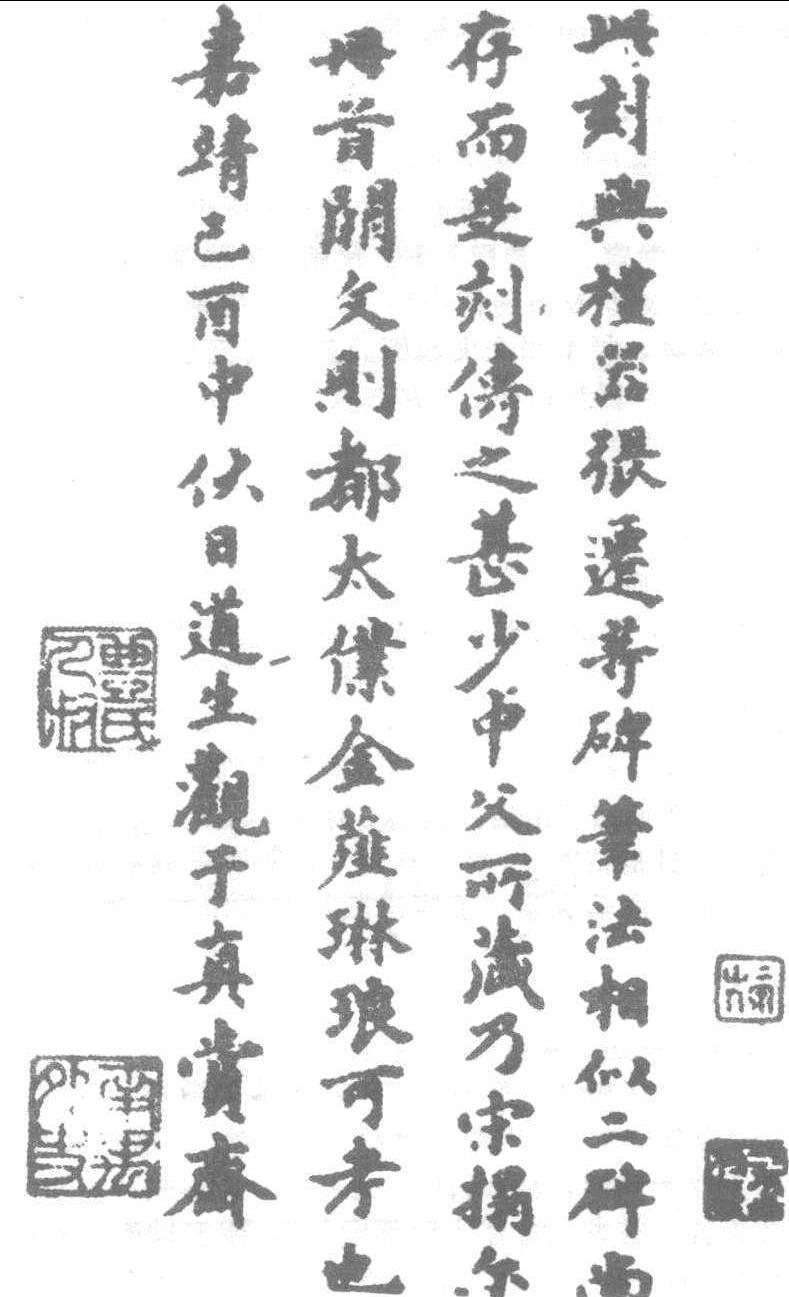 此刻與禮器張遷等碑筆法相似二碑尚
存而是刻傳之甚少中父所藏乃宋搨尔
冊首闕文則都太僕金薤琳琅可考也
嘉靖己酉中伏日道生觀于真賞齋
豐氏人叔